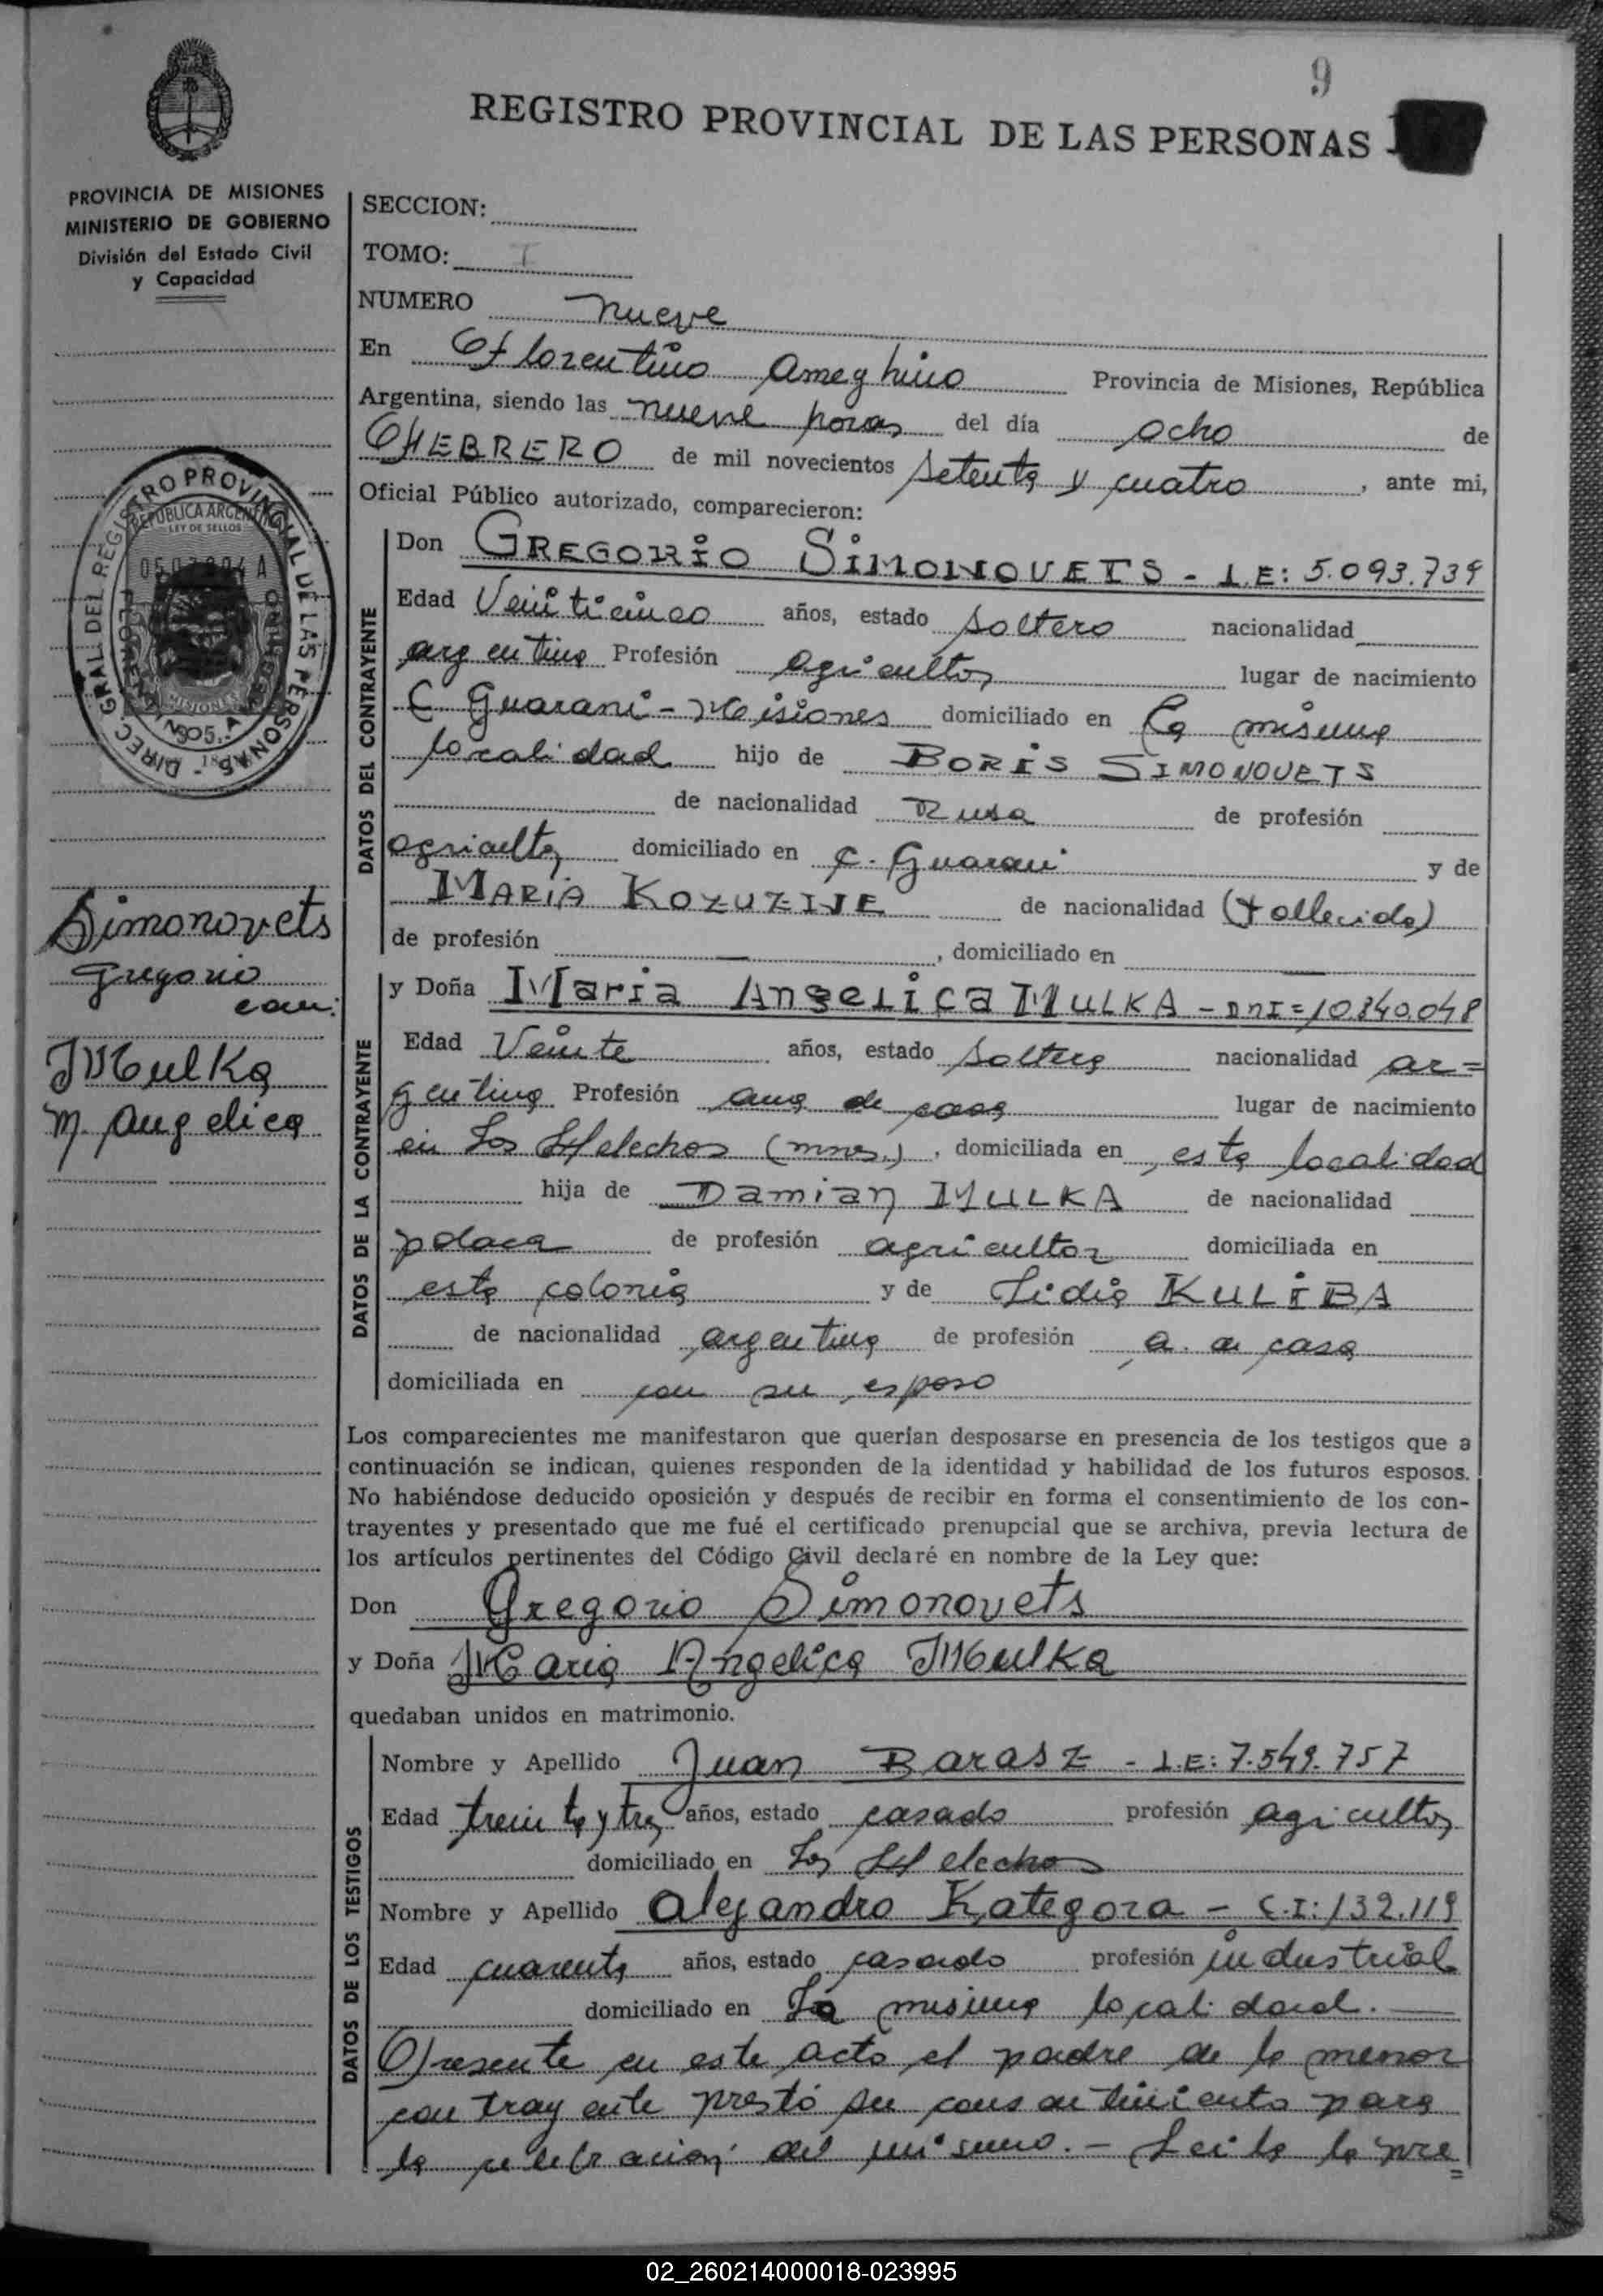 9
REGISTRO PROVINCIAL DE LAS PERSONAS
PROVINCIA DE MISIONES
MINISTERIO DE GOBIERNO
División del Estado Civil
y Capacidad
SECCION:
TOMO: I
NUMERO nueve
En Florentino Ameghino Provincia de Misiones, República
Argentina, siendo las nueve horas del día ocho de
FHEBRERO de mil novecientos setenta y cuatro, ante mi,
Oficial Público autorizado, comparecieron:
DATOS DEL CONTRAYENTE
Don GREGORIO SIMONOVETS - L E: 5.093.739
Edad Veinticinco años, estado soltero nacionalidad
argentina Profesión agricultor lugar de nacimiento
C Guarani - Misiones domiciliado en la misma
localidad hijo de BORIS SIMONOVETS
de nacionalidad Rusa de profesión
agricultor domiciliado en C. Guarani y de
MARIA KOZUZIJE de nacionalidad (fallecida)
de profesión —, domiciliado en —
DATOS DE LA CONTRAYENTE
y Doña Maria Angelica MULKA - DNI = 10.840.048
Edad Veinte años, estado soltera nacionalidad ar=
gentina Profesión ama de casa lugar de nacimiento
en Los Helechos (mnes.), domiciliada en esta localidad
hija de Damian MULKA de nacionalidad
polaca de profesión agricultor domiciliada en
esta colonia y de Lidia KULIBA
de nacionalidad argentina de profesión a. de casa
domiciliada en con su esposo
Los comparecientes me manifestaron que querían desposarse en presencia de los testigos que a
continuación se indican, quienes responden de la identidad y habilidad de los futuros esposos.
No habiéndose deducido oposición y después de recibir en forma el consentimiento de los con-
trayentes y presentado que me fué el certificado prenupcial que se archiva, previa lectura de
los artículos pertinentes del Código Civil declaré en nombre de la Ley que:
Don Gregorio Simonovets
y Doña Maria Angelica Mulka
quedaban unidos en matrimonio.
DATOS DE LOS TESTIGOS
Nombre y Apellido Juan BARASZ - L.E: 7.549.757
Edad treinta y tres años, estado casado profesión agricultor
domiciliado en Los Helechos
Nombre y Apellido Alejandro Kategora - C.I: 132.119
Edad cuarenta años, estado casado profesión industrial
domiciliado en La misma localidad. —
Presente en este acto el padre de la menor
contrayente prestó su consentimiento para
la celebración del mismo. - Leida la pre=
DIREC. GRAL DEL REGISTRO PROVINCIAL DE LAS PERSONAS
REPUBLICA ARGENTINA
LEY DE SELLOS
MISIONES
Simonovets
Gregorio
con:
Mulka
M. Angelica
02_260214000018-023995